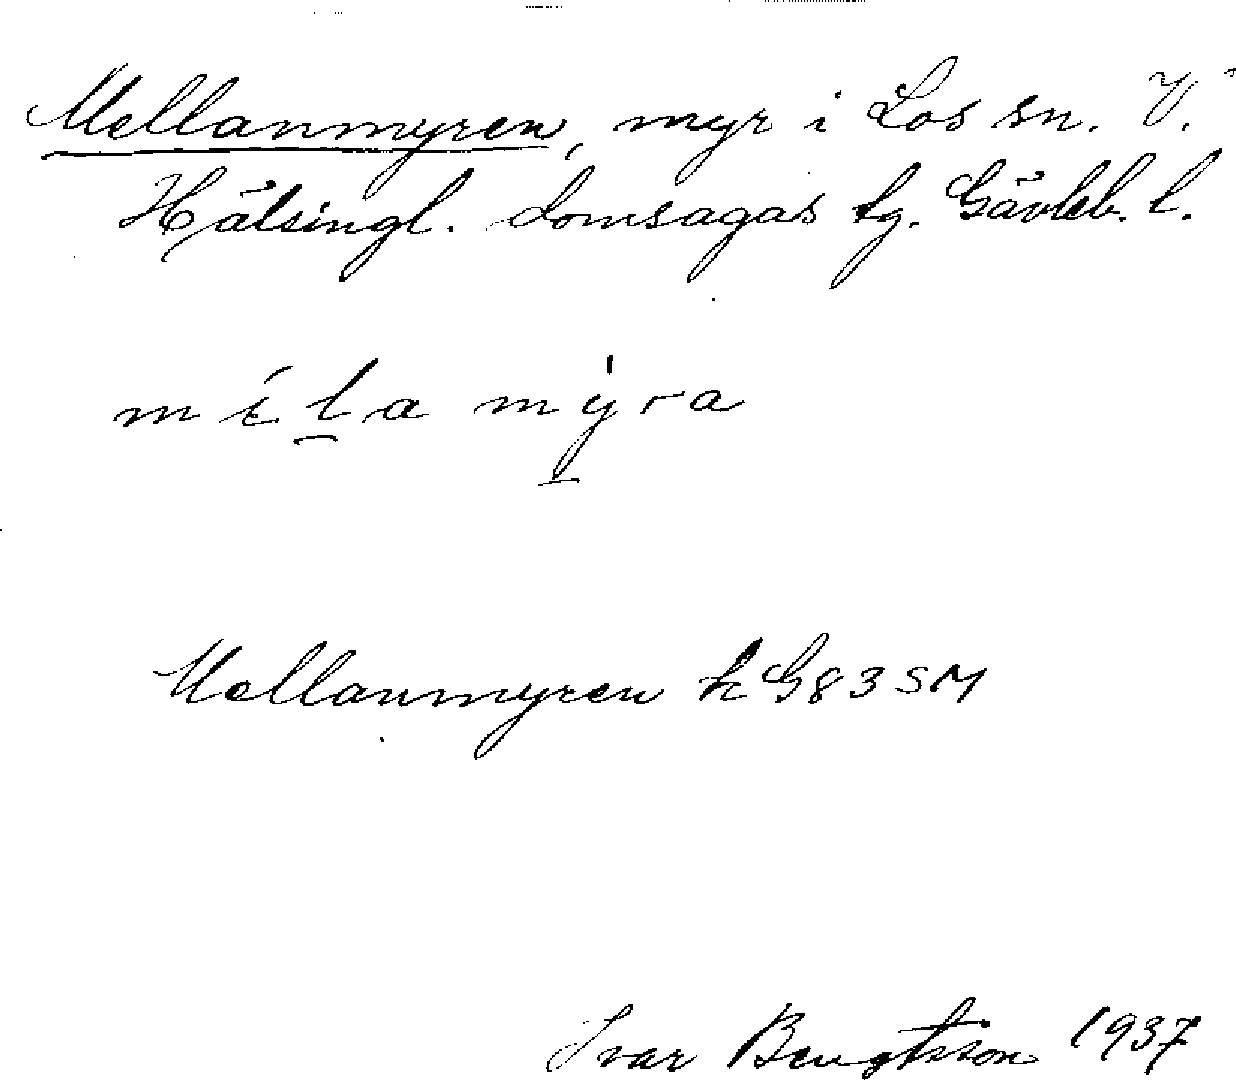 Mellanmyren, myr i Los sn. V.
Hälsingl. domsagas tg. Gävleb. l.
míla mýra
Mellanmyren h G83SM
Ivar Bengtsson 1937